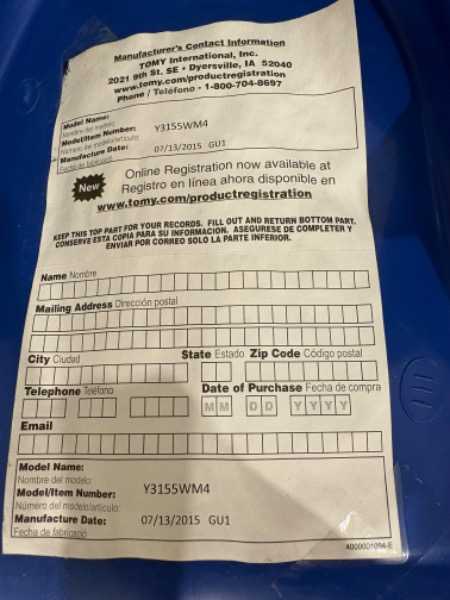 Manufacturer's Contact Information
TOMY International, Inc.
2021 9th St. SE • Dyersville, IA 52040
www.tomy.com/productregistration
Phone / Teléfono - 1-800-704-8697
Model Name:
Nombre del modelo:
Model/Item Number: Y3155WM4
Número de modelo/artículo:
Manufacture Date: 07/13/2015 GU1
Fecha de fabricació
New
Online Registration now available at
Registro en línea ahora disponible en
www.tomy.com/productregistration
KEEP THIS TOP PART FOR YOUR RECORDS. FILL OUT AND RETURN BOTTOM PART.
CONSERVE ESTA COPIA PARA SU INFORMACION. ASEGURESE DE COMPLETER Y
ENVIAR POR CORREO SOLO LA PARTE INFERIOR.
Name Nombre
Mailing Address Dirección postal
City Ciudad State Estado Zip Code Código postal
Telephone Teléfono Date of Purchase Fecha de compra
MM DD YYYY
Email
Model Name:
Nombre del modelo:
Model/Item Number: Y3155WM4
Número del modelo/artículo:
Manufacture Date: 07/13/2015 GU1
Fecha de fabricació
4000001094-E